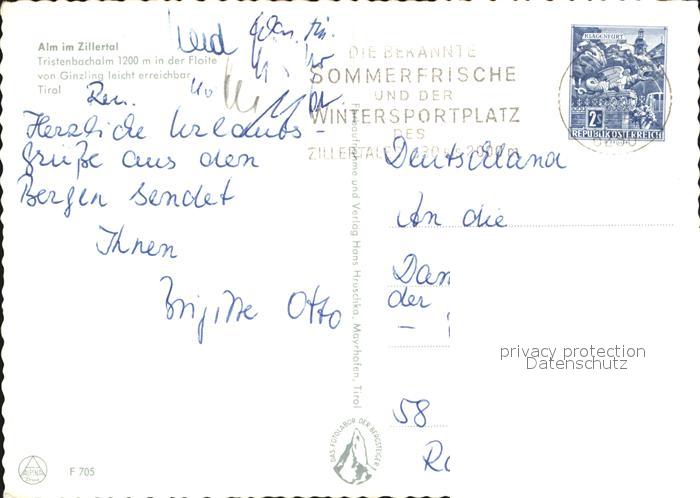 Alm im Zillertal
Tristenbachalm 1200 m in der Floite
von Ginzling leicht erreichbar
Tirol
Herzliche Urlaubs-
grüße aus den
Bergen sendet
Ihnen
Brigitte Otto
F 705
Farbaufnahme und Verlag Hans Hruschka, Mayrhofen, Tirol
DAS FOTOLABOR DER BERGSTEIGER
DIE BEKANNTE
SOMMERFRISCHE
UND DER
WINTERSPORTPLATZ
DES
ZILLERTALES
KLAGENFURT
2S
REPUBLIK ÖSTERREICH
Deutschland
An die
Dam
der
58
privacy protection
Datenschutz